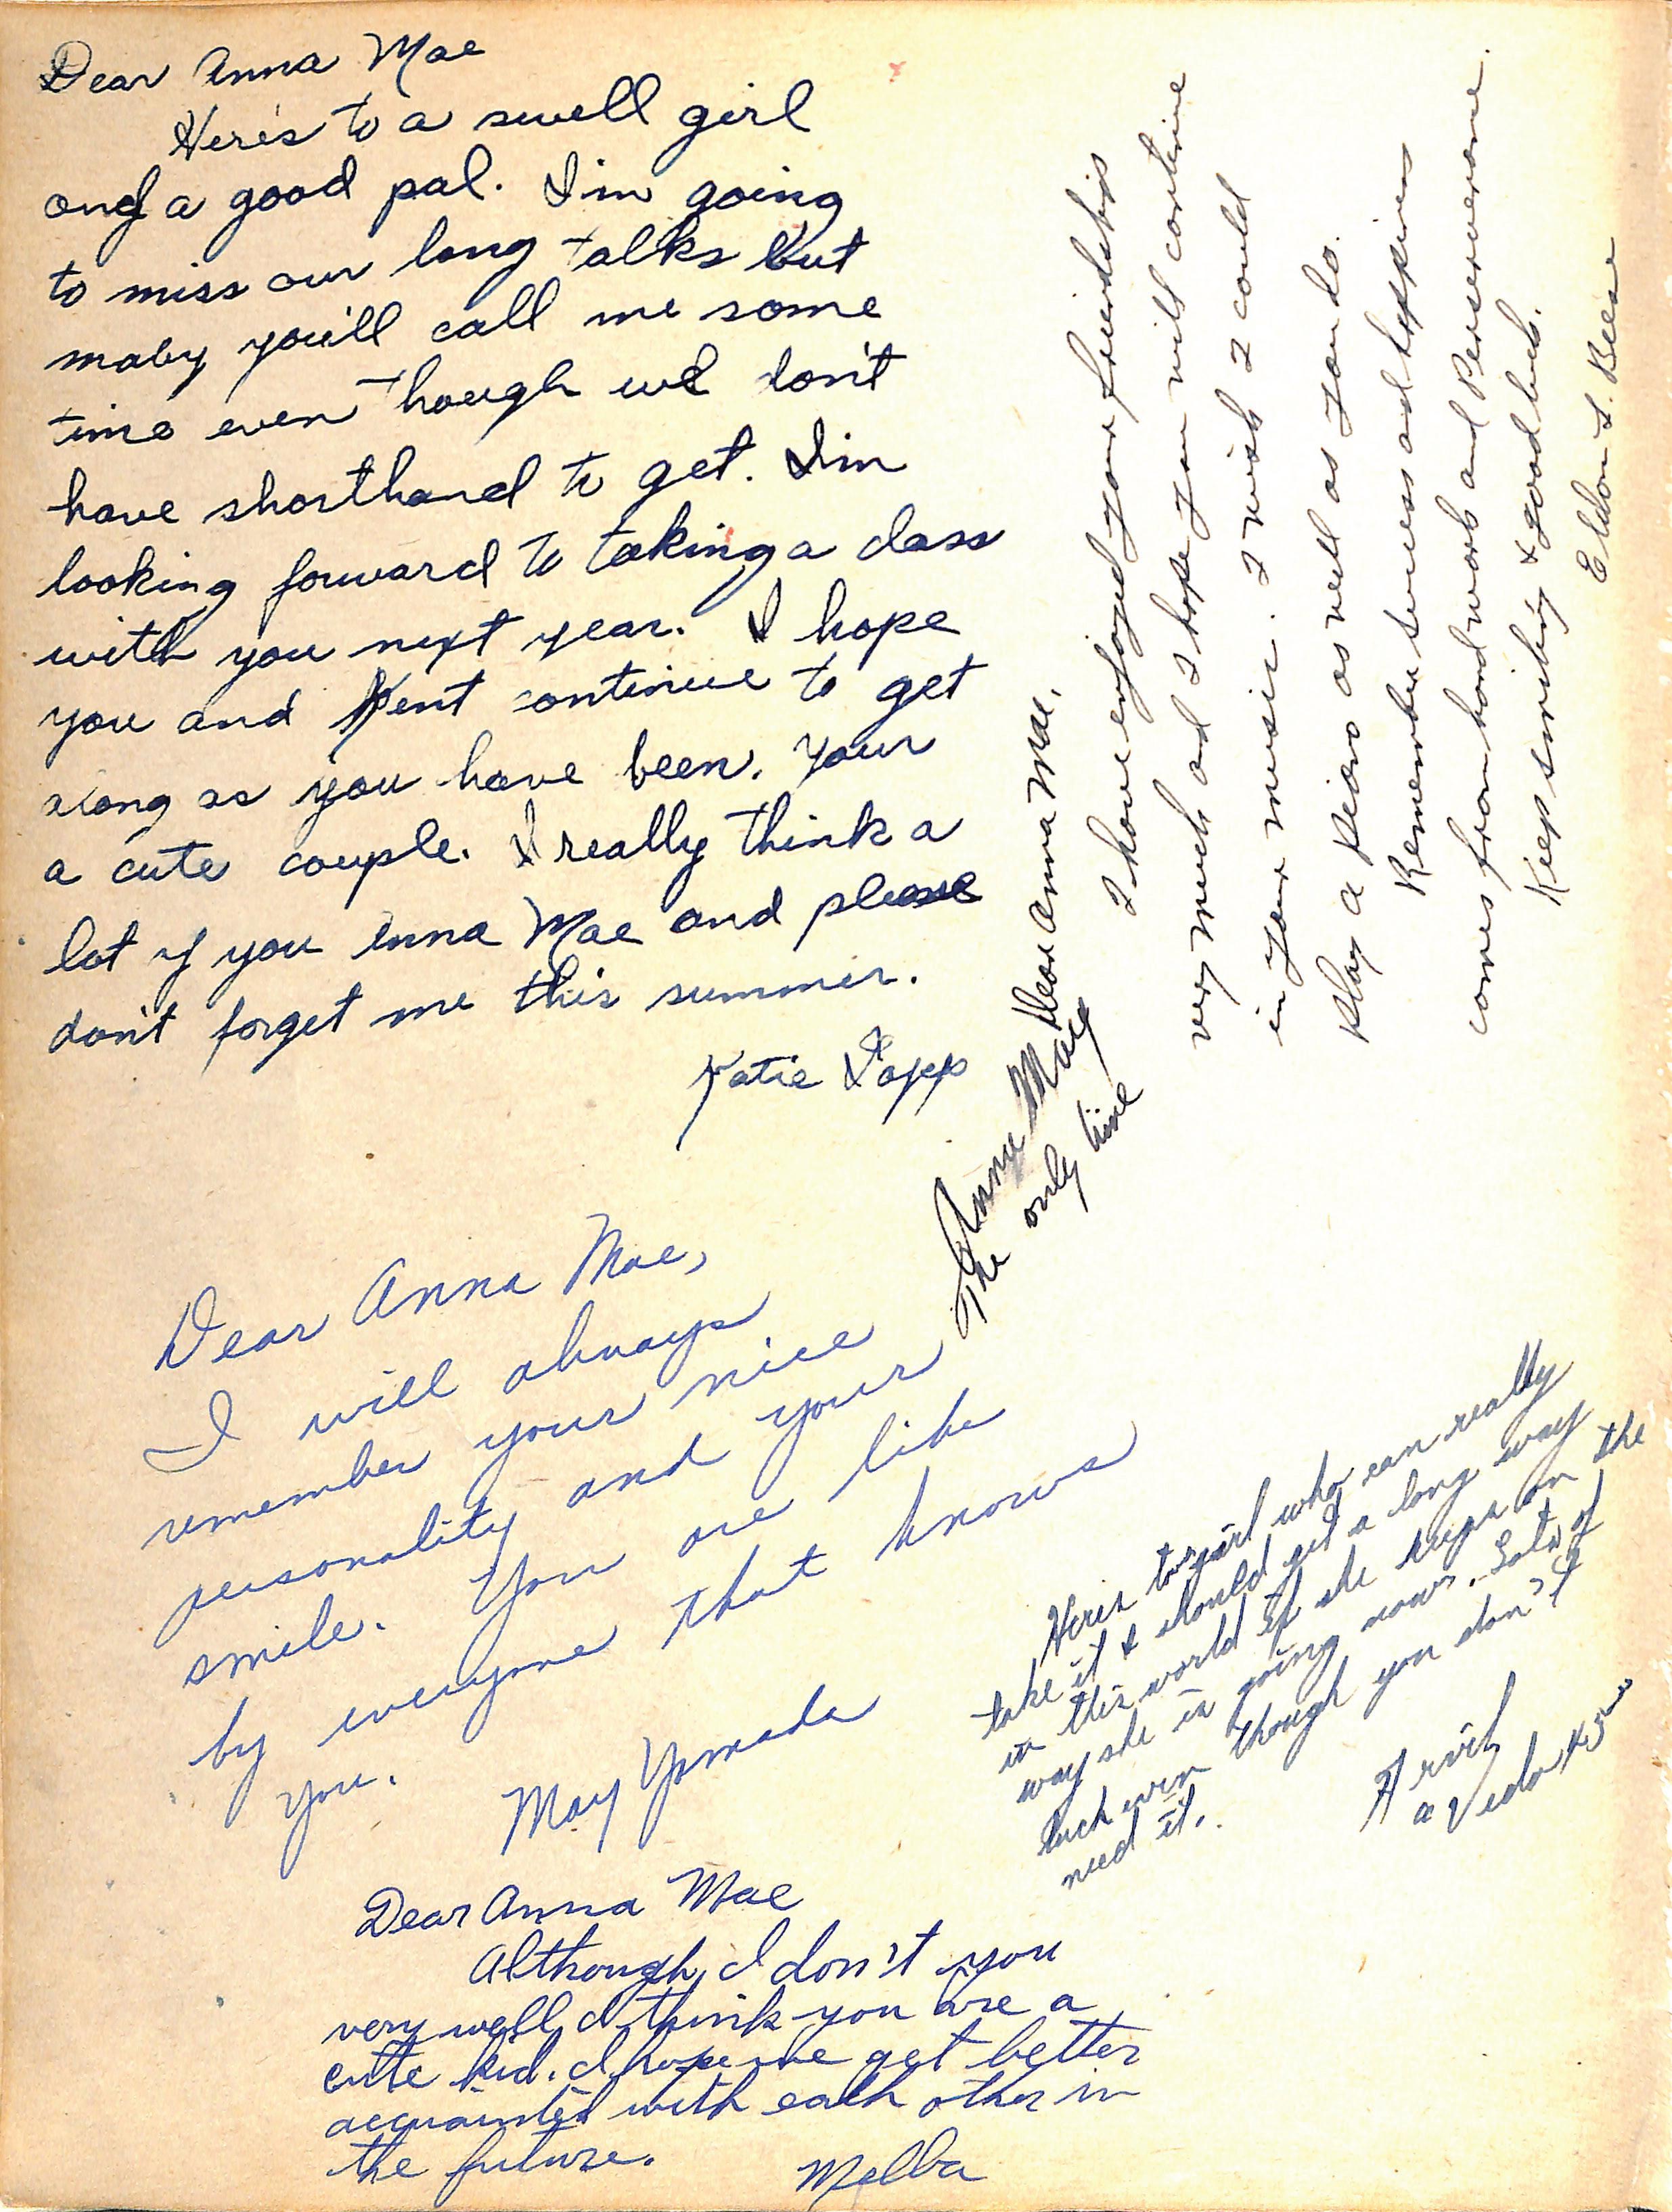 Dear Anna Mae
Here's to a swell girl
and a good pal. I'm going
to miss our long talks but
maby you'll call me some
time even though we don't
have shorthand to get. I'm
looking forward to taking a class
with you next year. I hope
you and Kent continue to get
along as you have been. Your
a cute couple. I really think a
lot of you Anna Mae and please
don't forget me this summer.
Katie
Dear Anna Mae,
I have enjoyed your friendship
very much and I hope you will continue
in your music. I wish I could
play a piano as well as you do.
Remember success and happiness
comes from hard work and Perserverence.
Keep smiling & good luck.
Eldon S. Beese
Anna Mae
The only
Dear Anna Mae,
I will always
remember your nice
personality and your
smile. You are like
by everyone that knows
you.
May Yamada
Heres to a girl who can really
take it & should get a long way
in this world if she keeps on the
way she is going now. Lots of
luck even though you don't
need it.
Dear Anna Mae
Although I don't you
very well I think you are a
cute kid. I hope we get better
acquainted with each other in
the future.
Melba